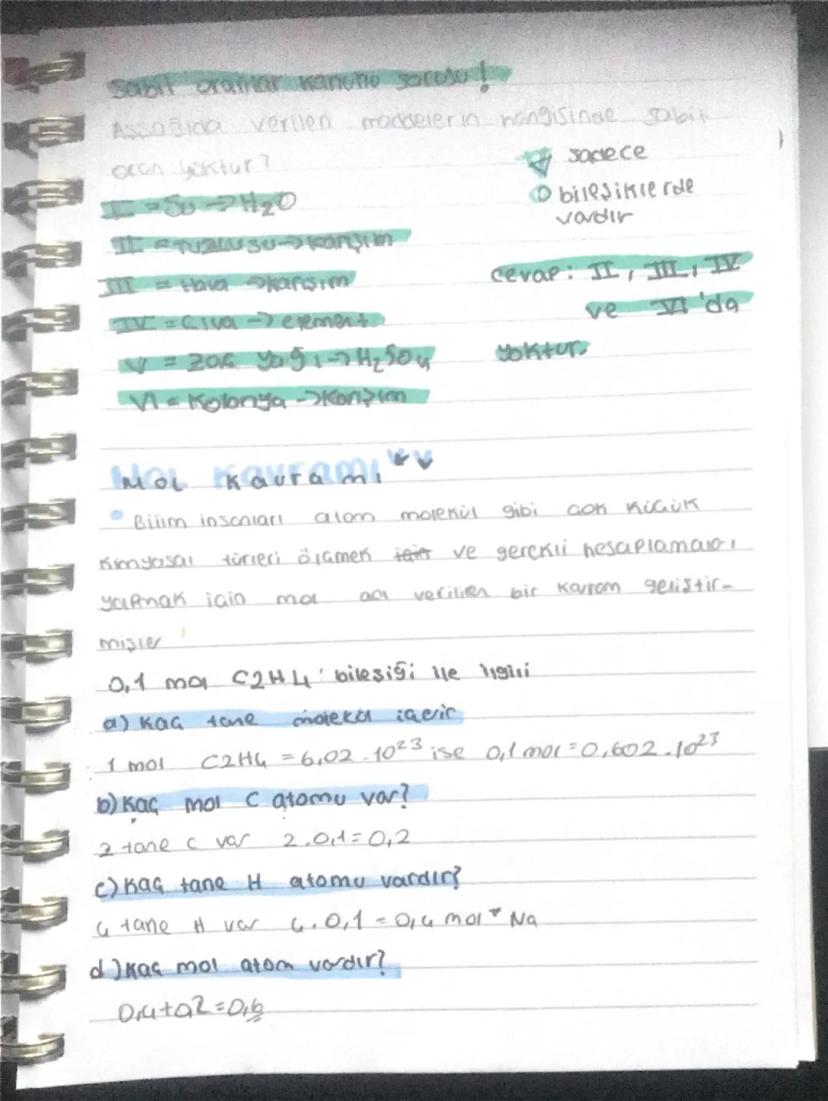 Sabit oranlar kanunu sorusu!
Assağıda verilen maddelerin hangisinde sabit
oran yoktur?
sadece
bileşiklerde
vardır
I = Su → H2O
II = Tuzlu su → karışım
III = Hava → karışım
IV = Civa → element
V = Zaç yağı → H2SO4
VI = Kolonya → Karışım
cevap: II, III, IV
ve VI'da
yoktur.
Mol Kavramı
Bilim insanları atom molekül gibi çok küçük
kimyasal türleri ölçmek için ve gerekli hesaplamaları
yapmak için mol adı verilen bir kavram geliştir-
mişler
0,1 mol C2H4 bileşiği ile ilgili
a) Kaç tane molekül içerir
1 mol C2H4 = 6,02 . 10^23 ise 0,1 mol = 0,602 . 10^23
b) Kaç mol C atomu var?
2 tane C var 2.0,1=0,2
c) Kaç tane H atomu vardır?
4 tane H var 4.0,1 = 0,4 mol * Na
d) Kaç mol atom vardır?
0,4+0,2=0,6